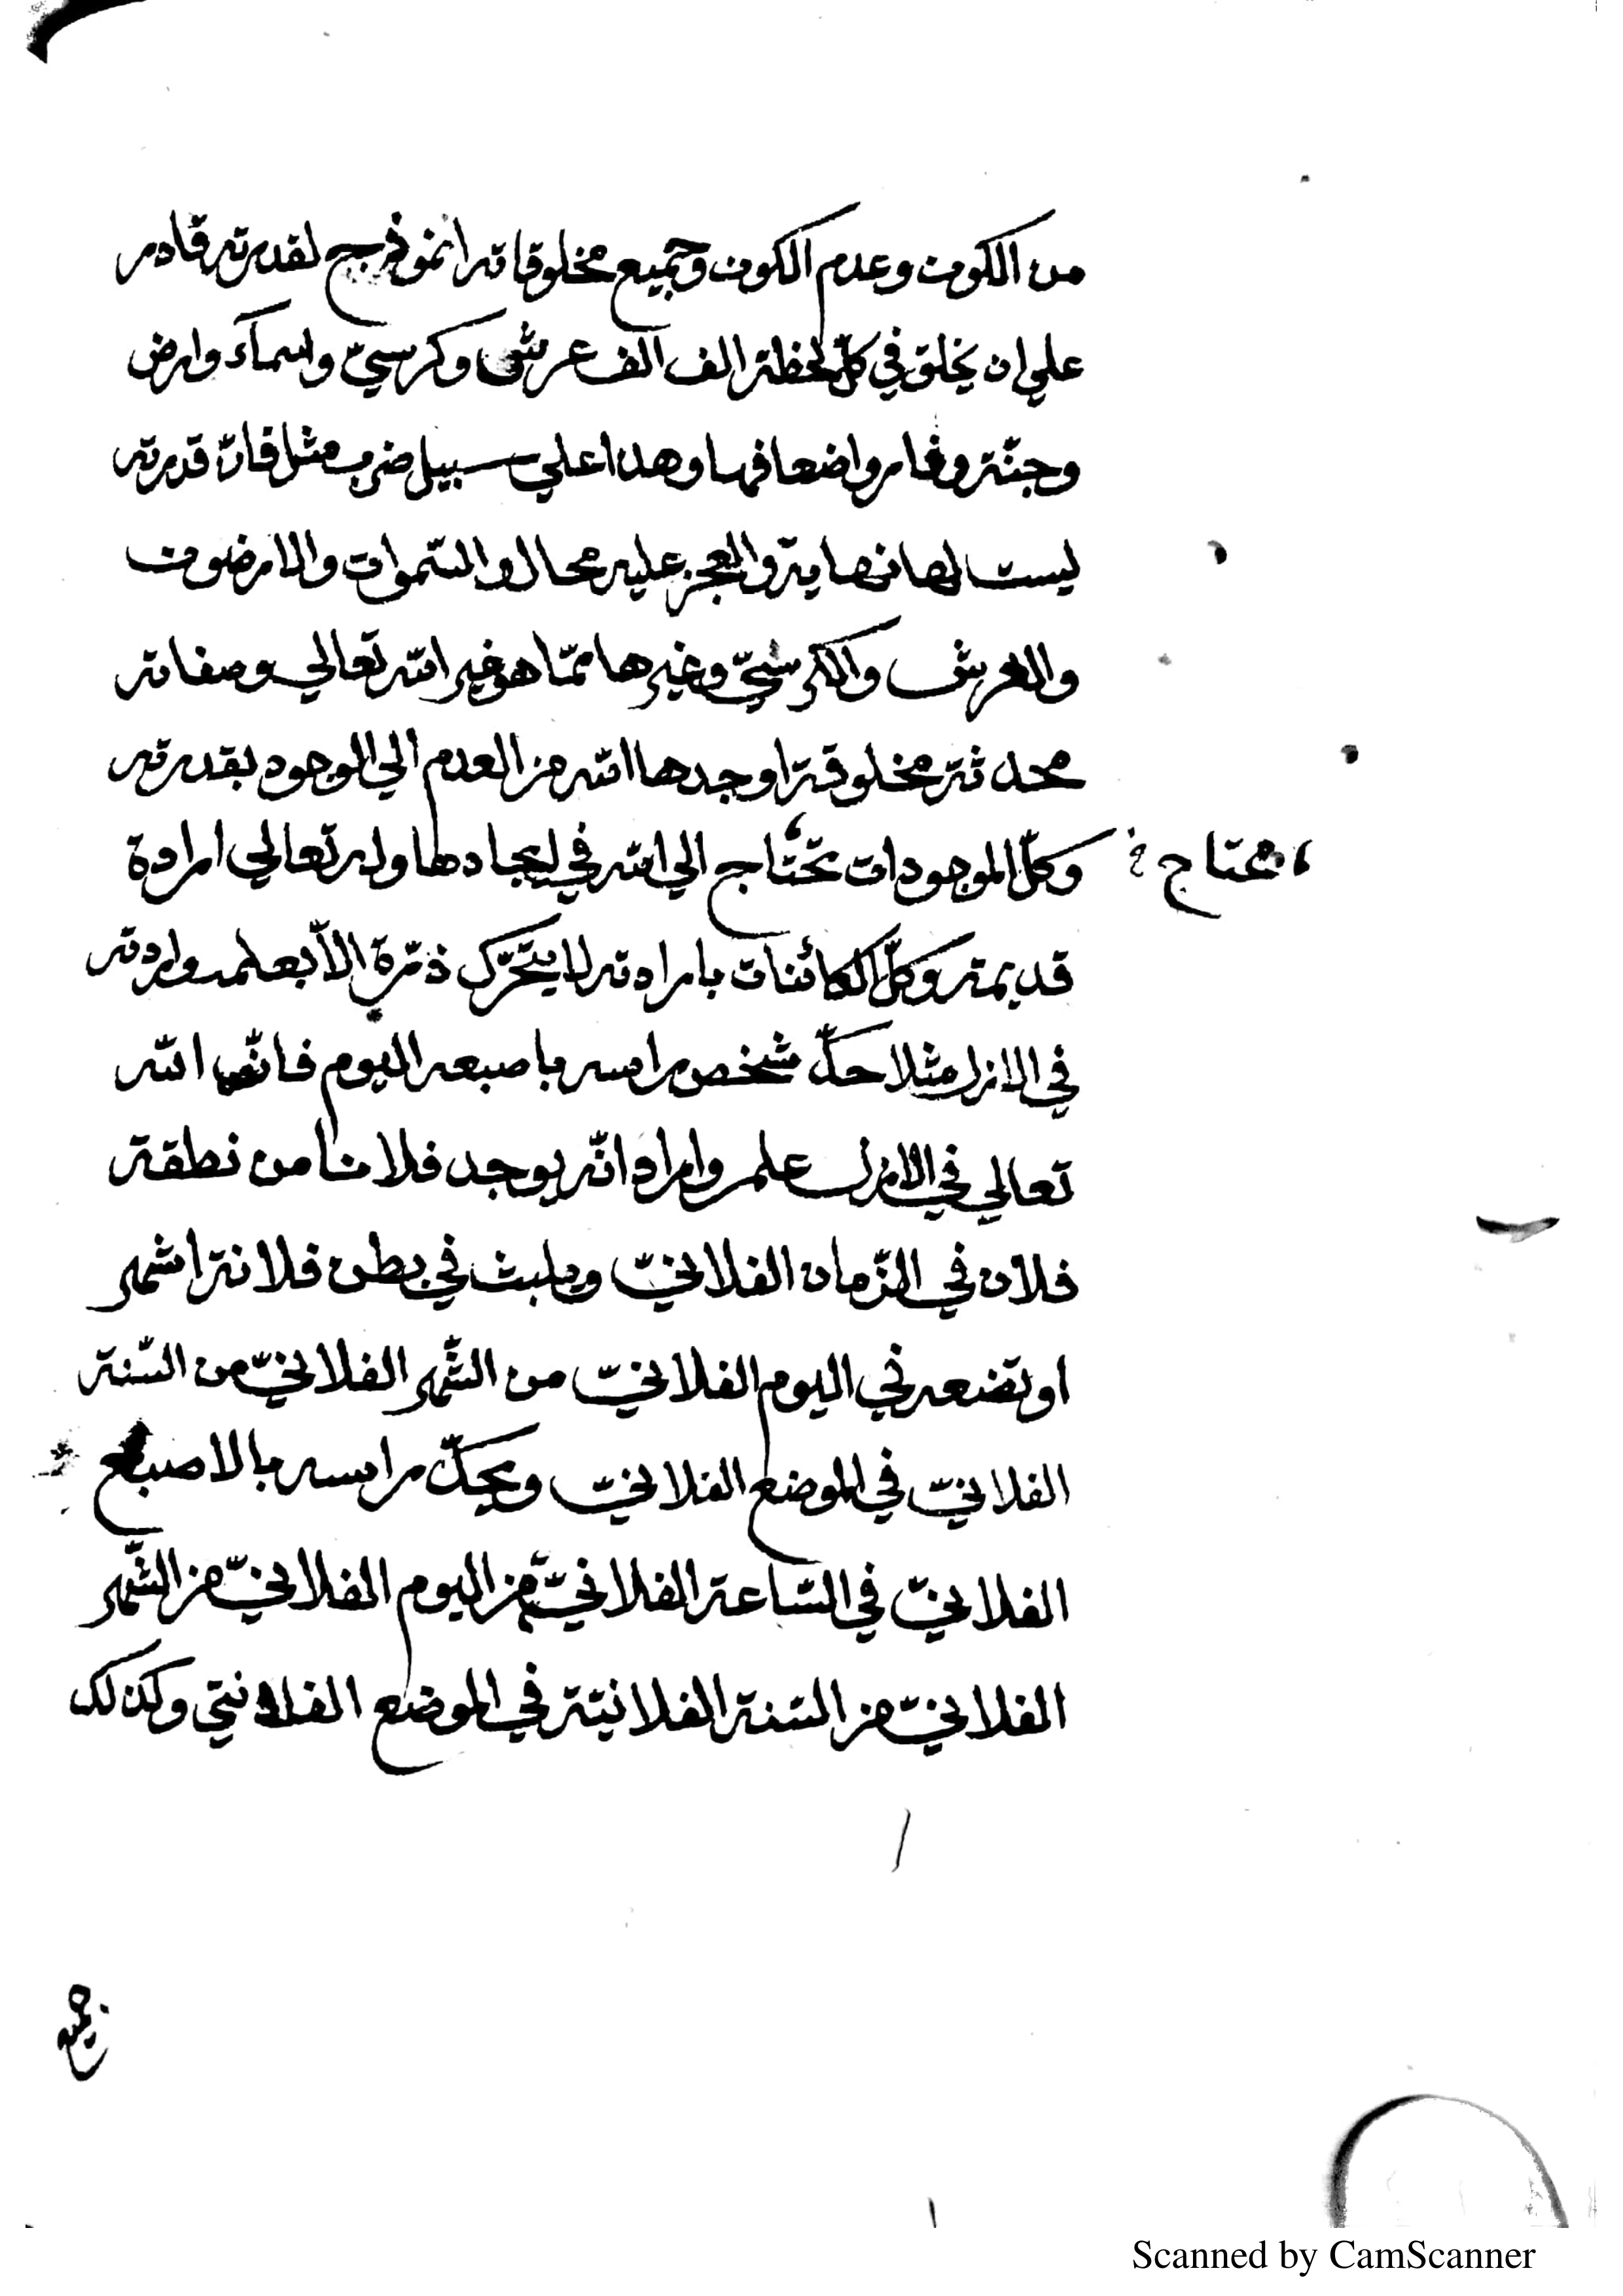 من الكون وعدم الكون وجميع مخلوقاته انموذج لقدرته قادر
علي ان يخلق في كلّ لحظة الف الف عرش وكرسيّ واسمآء وارض
وجنّة ونار واضعافها وهذا علي سبيل ضرب مثل فانّ قدرته
ليست لها نهاية والعجز عليه محال والسّموات والارضون
والعرش والكرسيّ وغيرها ممّا هو غير الله تعالي وصفاته
محدثة مخلوقة اوجدها الله من العدم الي الوجود بقدرته
وكلّ الموجودات تحتاج الي الله في ايجادها وله تعالي ارادة
محتاج
قديمة وكلّ الكائنات بارادته لا يتحرّك ذرّة الاّ بعلمه وارادته
في الازل مثلا حكّ شخص راسه باصبعه اليوم فانّ الله
تعالي في الازل علم واراد انّه يوجد فلانا من نطفة
فلان في الزّمان الفلانيّ ويلبث في بطن فلانة اشهر
او تضعه في اليوم الفلانيّ من الشّهر الفلانيّ من السّنة
الفلانيّ في الموضع الفلانيّ ويحكّ راسه بالاصبع
الفلانيّ في السّاعة الفلانيّ من اليوم الفلانيّ من الشّهر
الفلانيّ من السّنة الفلانيّة في الموضع الفلانيّ وكذلك
جميع
Scanned by CamScanner